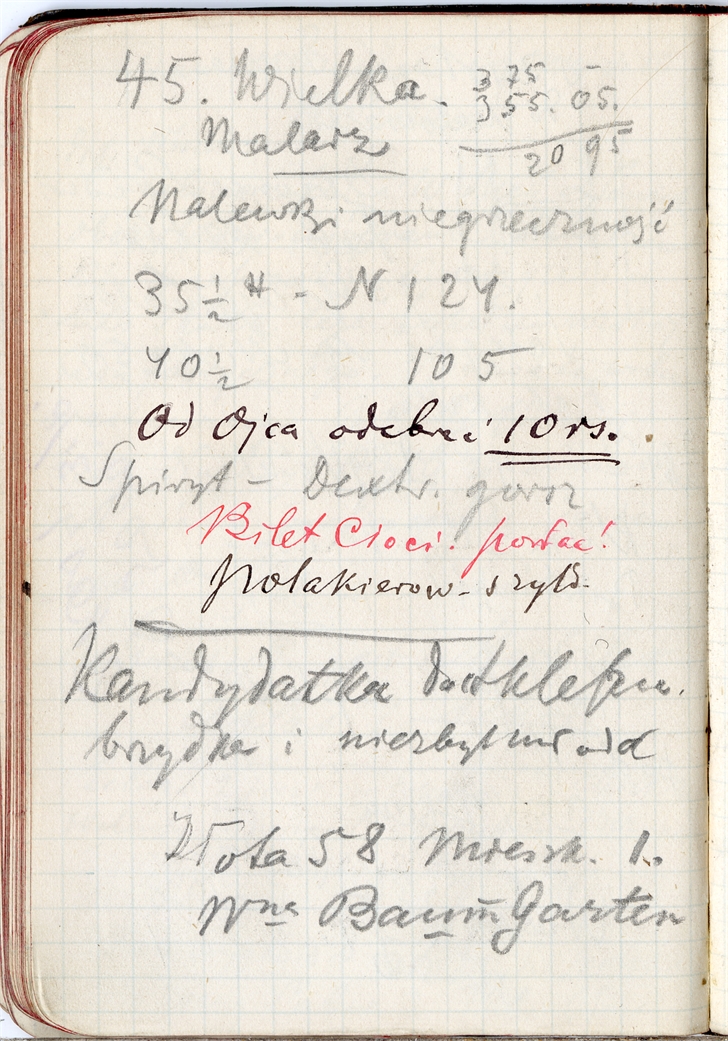 45. Wielka. 375 –
355. 05.
Malarz 20 95
Nalewki niegrzeczność
35 1/2 # - N 124.
40 1/2 105
Od Ojca odebrać 10 rs.
Spiryt – Dextr. gorz
Bilet Cioci. posłać!
Polakierow- szyld-
Kandydatka do
brzydka i niezbyt młoda
Złota 58 Mieszk. 1.
Wna Baumgarten